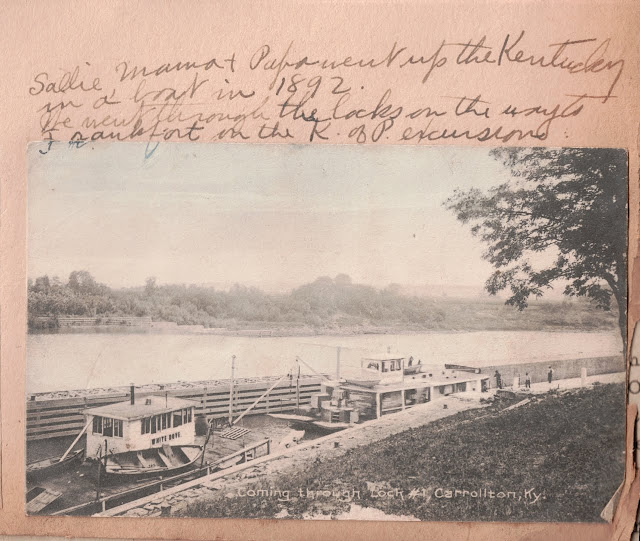 Sallie Mama & Papa went up the Kentucky
in a boat in 1892.
We went through the locks on the way to
Frankfort on the K. of P. excursion.
WHITE DOVE
Coming through Lock #1, Carrollton, Ky.